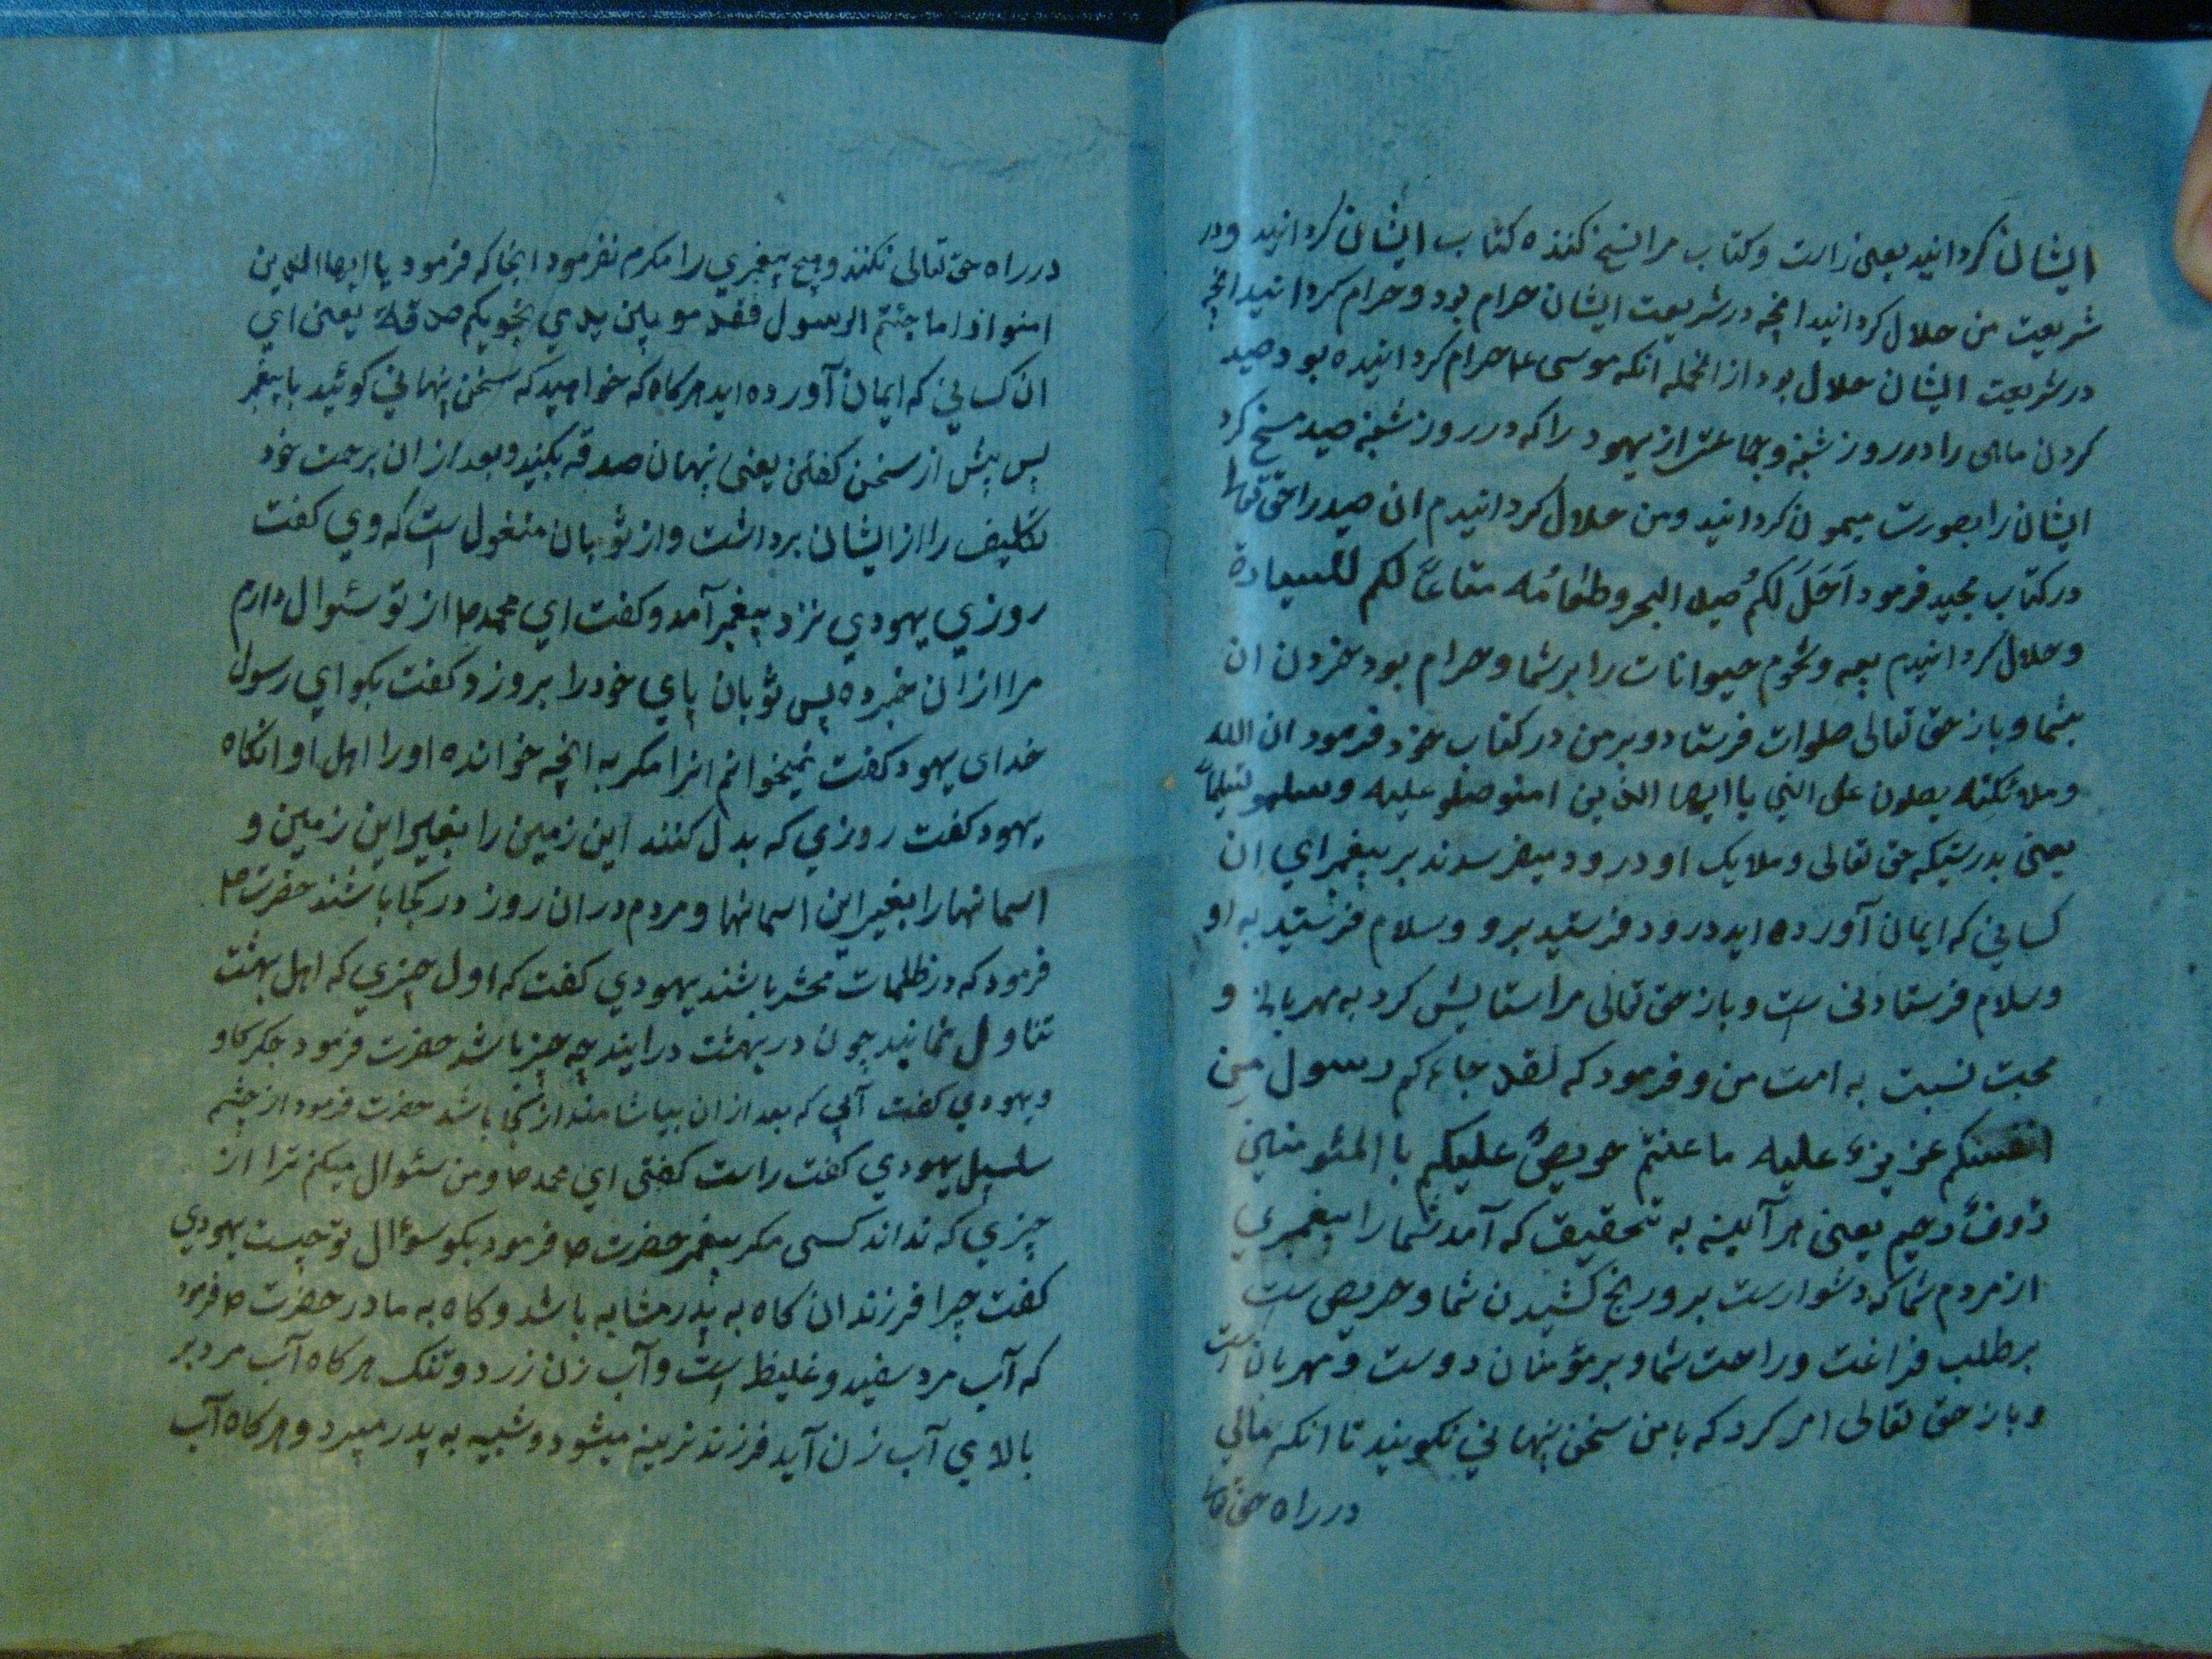 ایشان کردانید یعنی زارت و کتاب مرا نسخ کننده کتاب ایشان کردانید و در
شریعت من حلال کردانید انچه در شریعت ایشان حرام بود و حرام کردانید انچه
در شریعت ایشان حلال بود از انجمله انکه موسی ع حرام کردانیده بود صید
کردن ماهی را در روز شنبه و جماعتی از یهود را که در روز شنبه صید مسخ کرد
ایشان را بصورت میمون کردانید و من حلال کردانیدم ان صید را حق تعا
در کتاب مجید فرمود اَحَلَ لَکمُ صید البحر و طعامُه متاعاً لکم للسیارة
و حلال کردانیدم پیه و شحوم حیوانات را بر شما و حرام بود خردن ان
بشما و باز حق تعالی صلوات فرستاد و بر من در کتاب خود فرمود ان الله
و ملائکته یصلون علی النبی یا ایها الذین امنو صلو علیه و سلمو تسلیماً
یعنی بدرستیکه حق تعالی و ملایک او درود میفرسدند بر پیغمبر ای ان
کسانی که ایمان آورده اید درود فرستید برو و سلام فرستید به او
و سلام فرستادنی است و باز حق تعالی مرا ستایش کرد به مهربانی و
محبت نسبت به امت من و فرمود که لقد جاءکم رسول مِن
انفسکم عزیزءٌ علیه ماعنتم حریصٌ علیکم با المئومنین
رُوفٌ رحیم یعنی هرآینه به تحقیق که آمد شما را پیغمبری
از مردم شما که دشوارست برو رنج کشیدن شما و حریص است
بر طلب فراغت و راحت شما و بر مؤمنان دوست و مهربان است
و باز حق تعالی امر کرد که با من سخن پنهانی نکویند تا انکه مالی
در راه حق تعا
در راه حق تعالی نکنند و هیچ پیغمبری را مکرم نفرمود انجا که فرمود یا ایها الذین
امنو اذا ما جئتم الرسول فقدمو بین یدي نجویکم صدقة یعنی ای
ان کسانی که ایمان آورده اید هر کاه که خواهید که سخن پنهانی کوئید با پیغمبر
پس پیش از سخن کفتن یعنی پنهان صدقه بکنید و بعد از ان برحمت خود
تکلیف را از ایشان برداشت و از ثوبان منغول است که وی کفت
روزی یهودی نزد پیغمبر آمد و کفت ای محمد ص از تو سئوال دارم
مرا از ان خبر ده پس ثوبان پای خود را بر وزد و کفت بکو ای رسول
خدای یهود کفت نمیخوانم انرا مکر به انچه خوانده او را اهل او انکاه
یهود کفت روزی که بدل کنند این زمین را بغیر این زمین و
اسمانها را بغیر این اسمانها و مردم در ان روز در کجا باشند حضرت ص
فرمود که در ظلمات محشر باشند یهودی کفت که اول چیزی که اهل بهشت
تناول نمایند چون در بهشت درایند چه چیز باشد حضرت فرمود جکر کاو
و یهودی کفت آبی که بعد از ان بیاشامند از کجا باشد حضرت فرمود از چشم
سلسبیل یهودی کفت راست کفتی ای محمد ص و من سئوال میکنم ترا از
چیزی که نداند کسی مکر پیغمبر حضرت ص فرمود بکو سؤال تو چیست یهودی
کفت چرا فرزندان کاه به پدر مشابه باشد و کاه به مادر حضرت ص فرمود
که آب مرد سفید و غلیظ است و آب زن زرد و تنک هر کاه آب مرد بر
بالای آب زن آید فرزند نرینه میشود و شبیه به پدر میبرد و هر کاه آب